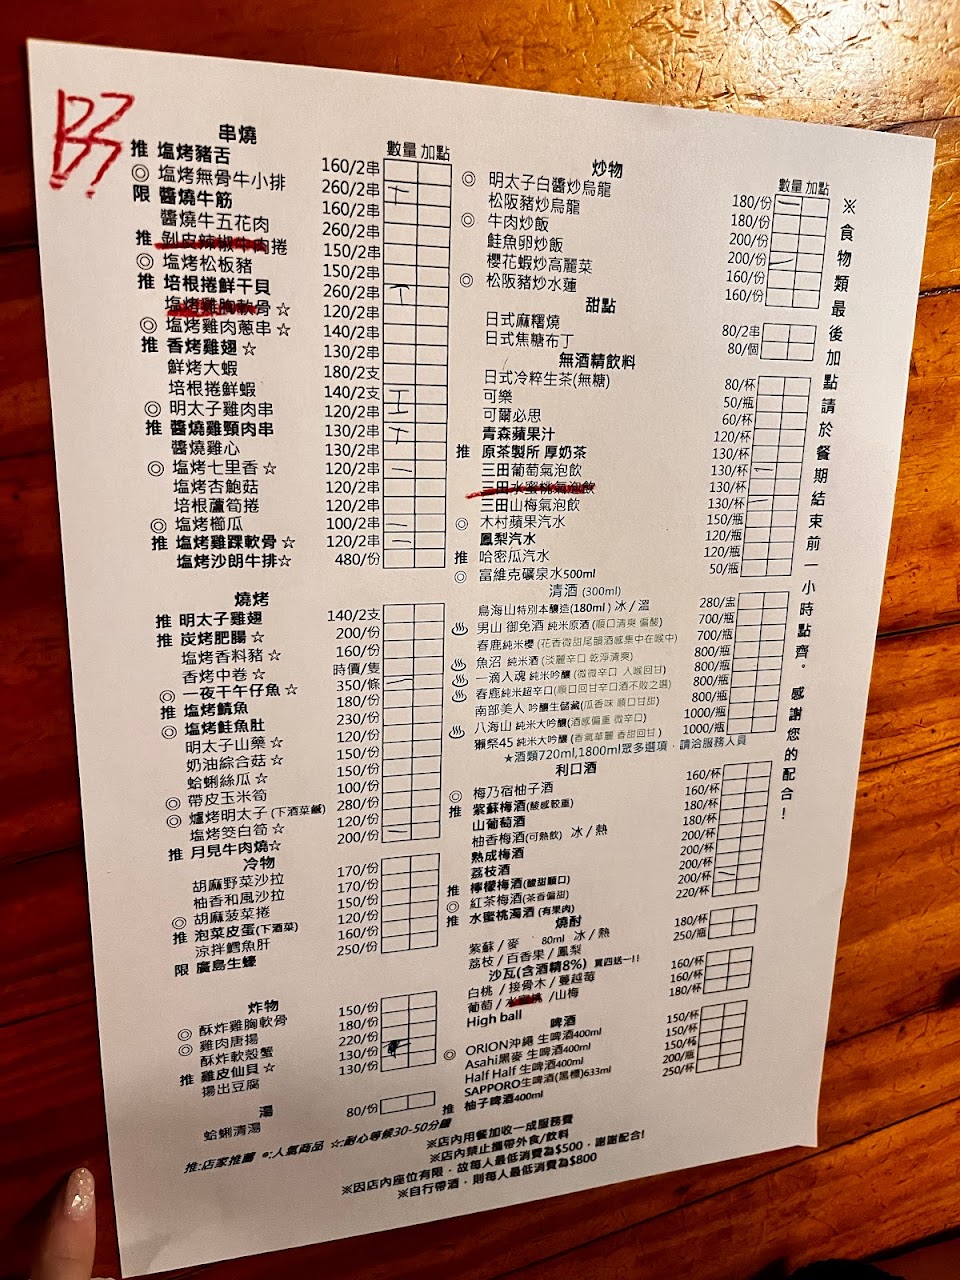 B3
串燒 數量 加點
推 塩烤豬舌 160/2串
◎ 塩烤無骨牛小排 260/2串
限 醬燒牛筋 160/2串
醬燒牛五花肉 260/2串
推 剝皮辣椒牛肉捲 150/2串
◎ 塩烤松板豬 150/2串
推 培根捲鮮干貝 260/2串
塩烤雞胸軟骨☆ 120/2串
◎ 塩烤雞肉蔥串☆ 140/2串
推 香烤雞翅☆ 130/2串
鮮烤大蝦 180/2支
培根捲鮮蝦 140/2支
◎ 明太子雞肉串 120/2串
推 醬燒雞頸肉串 130/2串
醬燒雞心 130/2串
◎ 塩烤七里香☆ 120/2串
塩烤杏鮑菇 120/2串
培根蘆筍捲 120/2串
◎ 塩烤櫛瓜 100/2串
推 塩烤雞踝軟骨☆ 120/2串
塩烤沙朗牛排☆ 480/份
燒烤
推 明太子雞翅 140/2支
推 炭烤肥腸☆ 200/份
塩烤香料豬☆ 160/份
香烤中卷☆ 時價/隻
◎ 一夜干午仔魚☆ 350/條
推 塩烤鯖魚 180/份
◎ 塩烤鮭魚肚 230/份
明太子山藥☆ 120/份
奶油綜合菇☆ 150/份
蛤蜊絲瓜☆ 150/份
◎ 帶皮玉米筍 100/份
◎ 爐烤明太子(下酒菜鹹) 280/份
塩烤筊白筍☆ 120/份
推 月見牛肉燒☆ 200/份
冷物
胡麻野菜沙拉 170/份
柚香和風沙拉 170/份
◎ 胡麻菠菜捲 150/份
推 泡菜皮蛋(下酒菜) 120/份
涼拌鱈魚肝 160/份
限 廣島生蠔 250/份
炸物
◎ 酥炸雞胸軟骨 150/份
◎ 雞肉唐揚 180/份
酥炸軟殼蟹 220/份
推 雞皮仙貝☆ 130/份
揚出豆腐 130/份
湯
蛤蜊清湯 80/份
推:店家推薦 ◎:人氣商品 ☆:耐心等候30-50分鐘
炒物 數量 加點
◎ 明太子白醬炒烏龍 180/份
松阪豬炒烏龍 180/份
◎ 牛肉炒飯 200/份
鮭魚卵炒飯 200/份
櫻花蝦炒高麗菜 160/份
◎ 松阪豬炒水蓮 160/份
甜點
日式麻糬燒 80/2串
日式焦糖布丁 80/個
無酒精飲料
日式冷粹生茶(無糖) 80/杯
可樂 50/瓶
可爾必思 60/杯
青森蘋果汁 120/杯
推 原茶製所 厚奶茶 130/杯
三田葡萄氣泡飲 130/杯
三田水蜜桃氣泡飲 130/杯
三田山梅氣泡飲 130/杯
◎ 木村蘋果汽水 150/瓶
鳳梨汽水 120/瓶
推 哈密瓜汽水 120/瓶
◎ 富維克礦泉水500ml 50/瓶
清酒 (300ml)
鳥海山特別本釀造(180ml) 冰 / 溫 280/盅
男山 御免酒 純米原酒 (順口清爽 偏酸) 700/瓶
春鹿純米櫻 (花香微甜尾韻酒感集中在喉中) 700/瓶
魚沼 純米酒 (淡麗辛口 乾淨清爽) 800/瓶
一滴人魂 純米吟釀 (微微辛口 入喉回甘) 800/瓶
春鹿純米超辛口(順口回甘辛口酒不敗之選) 800/瓶
南部美人 吟釀生儲藏(瓜香味 順口甘甜) 800/瓶
八海山 純米大吟釀(酒感偏重 微辛口) 1000/瓶
獺祭45 純米大吟釀 (香氣華麗 香甜回甘) 1000/瓶
★酒類720ml,1800ml眾多選項,請洽服務人員
利口酒
◎ 梅乃宿柚子酒 160/杯
推 紫蘇梅酒(酸感較重) 160/杯
山葡萄酒 180/杯
柚香梅酒(可熱飲) 冰 / 熱 180/杯
熟成梅酒 200/杯
荔枝酒 200/杯
推 檸檬梅酒(酸甜順口) 200/杯
◎ 紅茶梅酒(茶香偏甜) 200/杯
推 水蜜桃濁酒(有果肉) 220/杯
燒酎
紫蘇 / 麥 80ml 冰 / 熱 180/杯
荔枝 / 百香果 / 鳳梨 250/瓶
沙瓦(含酒精8%) 買四送一!!
白桃 / 接骨木 / 蔓越莓 160/杯
葡萄 / 水蜜桃 / 山梅 160/杯
High ball 180/杯
啤酒
◎ ORION沖繩 生啤酒400ml 150/杯
Asahi黑麥 生啤酒400ml 150/杯
Half Half 生啤酒400ml 150/杯
SAPPORO生啤酒(黑標)633ml 200/瓶
推 柚子啤酒400ml 250/杯
※店內用餐加收一成服務費
※店內禁止攜帶外食/飲料
※因店內座位有限,故每人最低消費為$500,謝謝配合!
※自行帶酒,則每人最低消費為$800
※食物類最後加點請於餐期結束前一小時點齊。感謝您的配合!